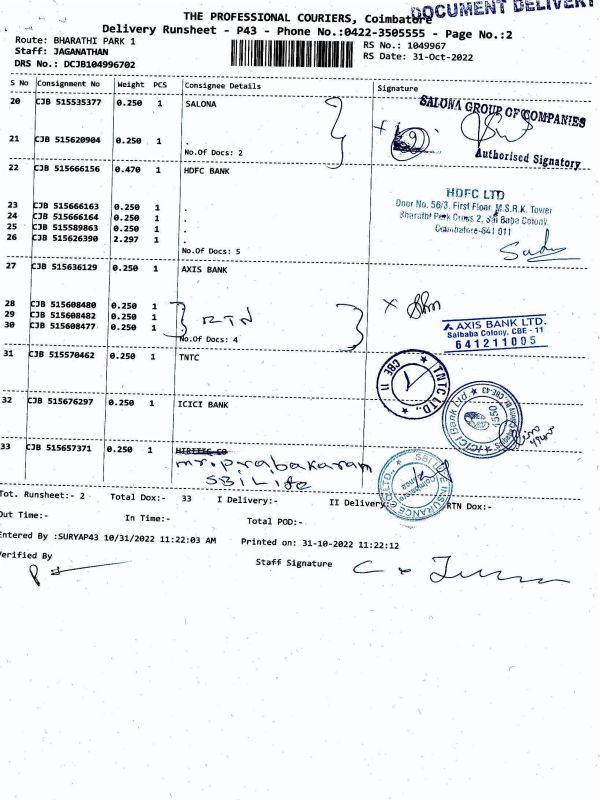 DOCUMENT DELIVERY
THE PROFESSIONAL COURIERS, Coimbatore
Delivery Runsheet - P43 - Phone No.:0422-3505555 - Page No.:2
Route: BHARATHI PARK 1
RS No.: 1049967
Staff: JAGANATHAN
RS Date: 31-Oct-2022
DRS No.: DCJB104996702
S No Consignment No Weight PCS Consignee Details Signature
20 CJB 515535377 0.250 1 SALONA
SALONA GROUP OF COMPANIES
21 CJB 515620904 0.250 1 .
No.Of Docs: 2
Authorised Signatory
22 CJB 515666156 0.470 1 HDFC BANK
HDFC LTD
Door No. 56/3, First Floor, M.S.R.K. Tower
Bharathi Park Cross 2, Sai Baba Colony,
Coimbatore-641 011
23 CJB 515666163 0.250 1 .
24 CJB 515666164 0.250 1 .
25 CJB 515589863 0.250 1 .
26 CJB 515626390 2.297 1 .
No.Of Docs: 5
27 CJB 515636129 0.250 1 AXIS BANK
28 CJB 515608480 0.250 1 .
29 CJB 515608482 0.250 1 .
30 CJB 515608477 0.250 1 .
RTN
No.Of Docs: 4
AXIS BANK LTD.
Saibaba Colony, CBE - 11
641211005
31 CJB 515570462 0.250 1 TNTC
TNTC LTD., CBE 11
32 CJB 515676297 0.250 1 ICICI BANK
ICICI Bank Ltd.
33 CJB 515657371 0.250 1
mr. prabakaran
SBI Life
Tot. Runsheet:- 2 Total Dox:- 33 I Delivery:- II Delivery:- RTN Dox:-
Out Time:- In Time:- Total POD:-
Entered By :SURYAP43 10/31/2022 11:22:03 AM Printed on: 31-10-2022 11:22:12
Verified By
Staff Signature